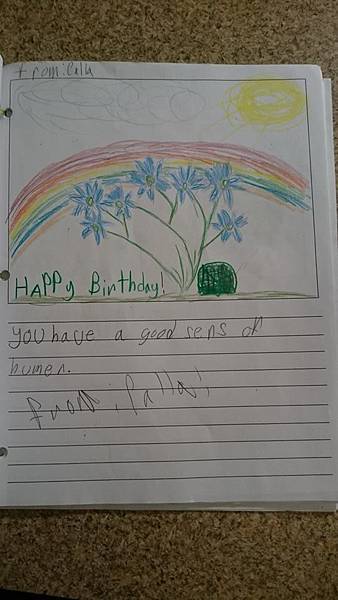 from: Calla
HAPPy Birthday!
you have a good sens of
humer.
from: Calla!